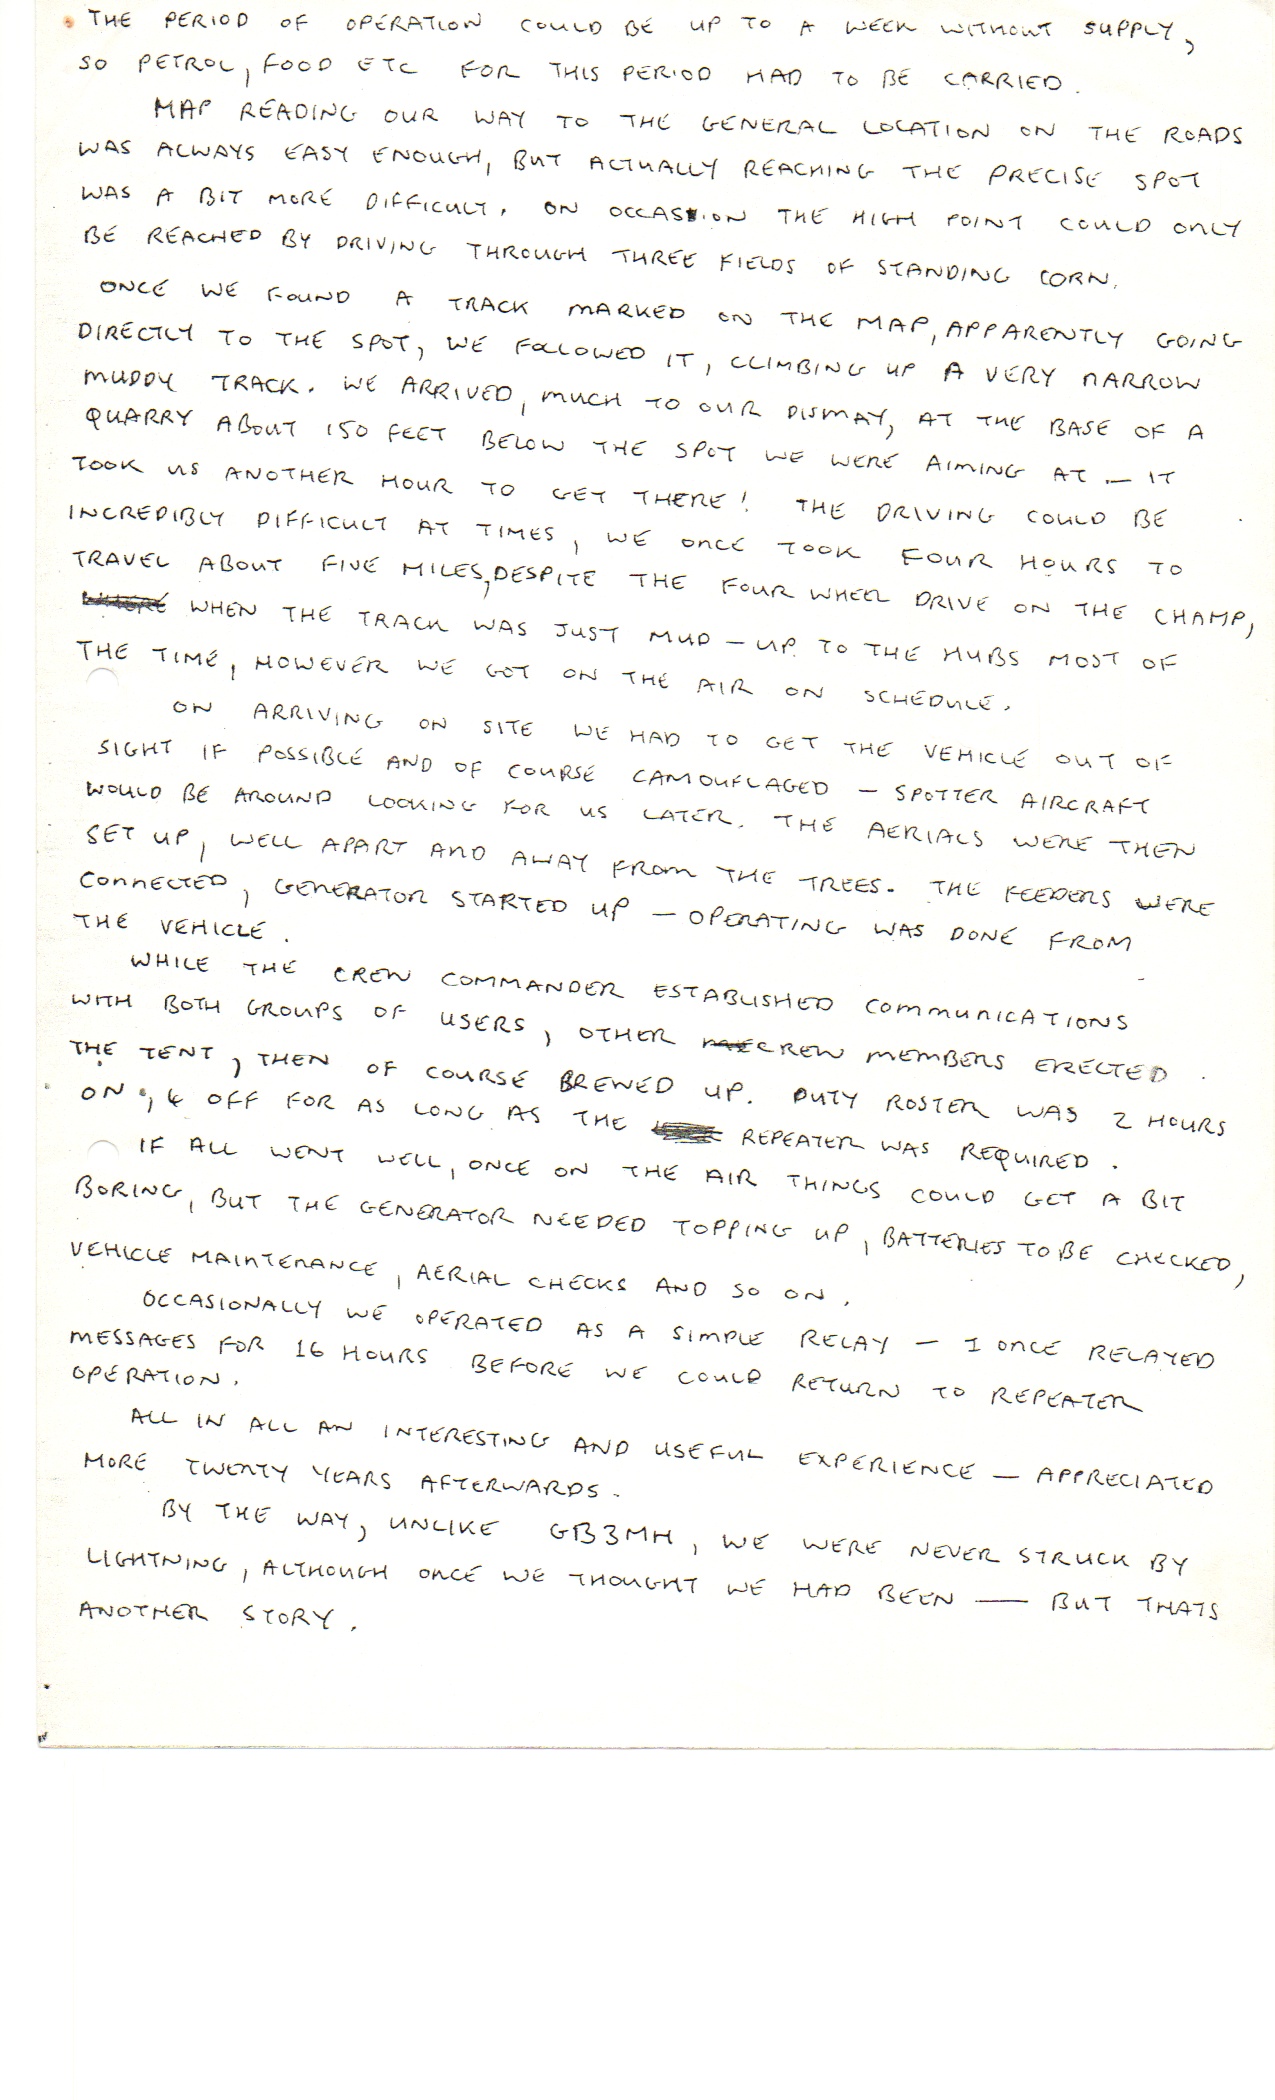 THE PERIOD OF OPERATION COULD BE UP TO A WEEK WITHOUT SUPPLY,
SO PETROL, FOOD ETC FOR THIS PERIOD HAD TO BE CARRIED.
MAP READING OUR WAY TO THE GENERAL LOCATION ON THE ROADS
WAS ALWAYS EASY ENOUGH, BUT ACTUALLY REACHING THE PRECISE SPOT
WAS A BIT MORE DIFFICULT. ON OCCASION THE HIGH POINT COULD ONLY
BE REACHED BY DRIVING THROUGH THREE FIELDS OF STANDING CORN.
ONCE WE FOUND A TRACK MARKED ON THE MAP, APPARENTLY GOING
DIRECTLY TO THE SPOT, WE FOLLOWED IT, CLIMBING UP A VERY NARROW
MUDDY TRACK. WE ARRIVED, MUCH TO OUR DISMAY, AT THE BASE OF A
QUARRY ABOUT 150 FEET BELOW THE SPOT WE WERE AIMING AT — IT
TOOK US ANOTHER HOUR TO GET THERE! THE DRIVING COULD BE
INCREDIBLY DIFFICULT AT TIMES, WE ONCE TOOK FOUR HOURS TO
TRAVEL ABOUT FIVE MILES, DESPITE THE FOUR WHEEL DRIVE ON THE CHAMP,
WHEN THE TRACK WAS JUST MUD — UP TO THE HUBS MOST OF
THE TIME, HOWEVER WE GOT ON THE AIR ON SCHEDULE.
ON ARRIVING ON SITE WE HAD TO GET THE VEHICLE OUT OF
SIGHT IF POSSIBLE AND OF COURSE CAMOUFLAGED — SPOTTER AIRCRAFT
WOULD BE AROUND LOOKING FOR US LATER. THE AERIALS WERE THEN
SET UP, WELL APART AND AWAY FROM THE TREES. THE FEEDERS WERE
CONNECTED, GENERATOR STARTED UP — OPERATING WAS DONE FROM
THE VEHICLE.
WHILE THE CREW COMMANDER ESTABLISHED COMMUNICATIONS
WITH BOTH GROUPS OF USERS, OTHER CREW MEMBERS ERECTED
THE TENT, THEN OF COURSE BREWED UP. DUTY ROSTER WAS 2 HOURS
ON, 4 OFF FOR AS LONG AS THE REPEATER WAS REQUIRED.
IF ALL WENT WELL, ONCE ON THE AIR THINGS COULD GET A BIT
BORING, BUT THE GENERATOR NEEDED TOPPING UP, BATTERIES TO BE CHECKED,
VEHICLE MAINTENANCE, AERIAL CHECKS AND SO ON.
OCCASIONALLY WE OPERATED AS A SIMPLE RELAY — I ONCE RELAYED
MESSAGES FOR 16 HOURS BEFORE WE COULD RETURN TO REPEATER
OPERATION.
ALL IN ALL AN INTERESTING AND USEFUL EXPERIENCE — APPRECIATED
MORE TWENTY YEARS AFTERWARDS.
BY THE WAY, UNLIKE GB3MH, WE WERE NEVER STRUCK BY
LIGHTNING, ALTHOUGH ONCE WE THOUGHT WE HAD BEEN — BUT THATS
ANOTHER STORY.